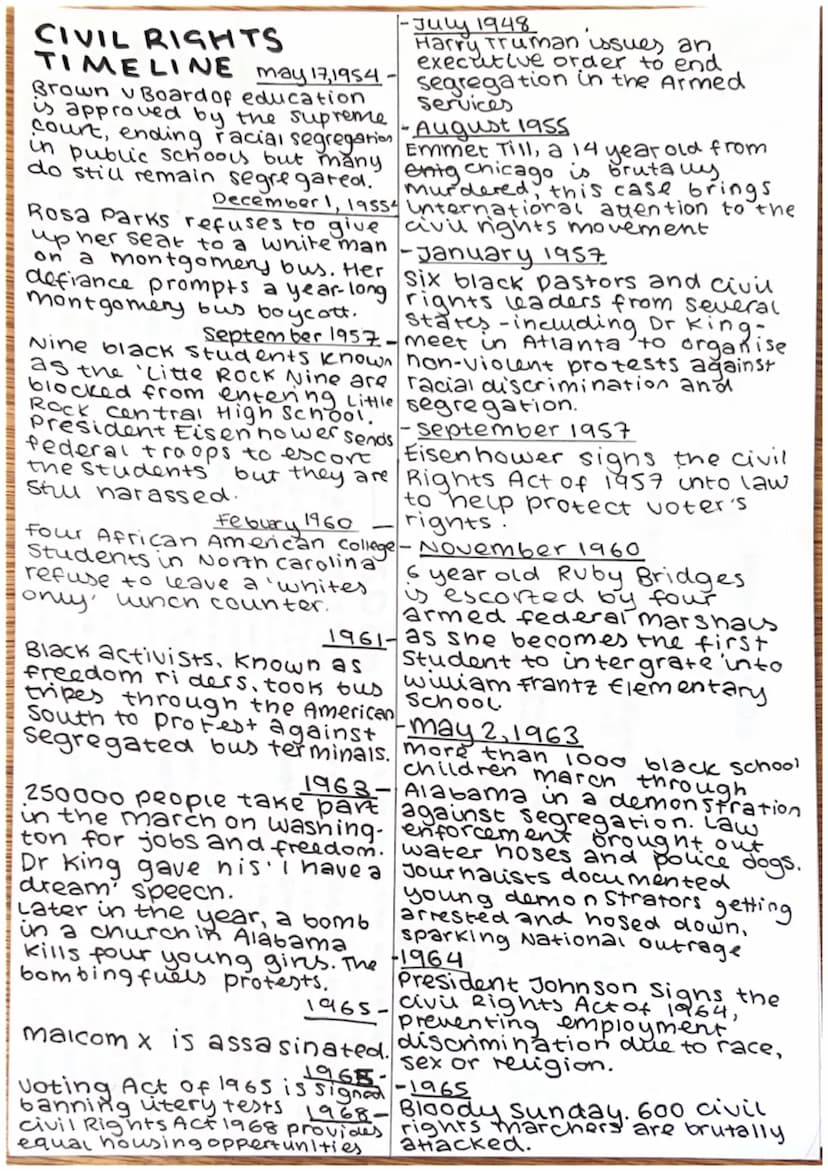 CIVIL RIGHTS
TIMELINE may 17,1954 -
Brown v Board of education
is approved by the supreme
court, ending racial segregation
in public schools but many
do still remain segregated.
December 1, 1955-
Rosa Parks refuses to give
up her seat to a white man
on a montgomery bus. Her
defiance prompts a year-long
montgomery bus boycott.
September 1957 -
Nine black students known
as the 'Little Rock Nine are
blocked from entering Little
Rock central High School.
President Eisenhower sends
federal troops to escort
the students but they are
still harassed.
Febury 1960 -
Four African American college
students in North Carolina
refuse to leave a 'whites
only' lunch counter.
1961-
Black activists, known as
freedom riders, took bus
tripes through the American
South to protest against
segregated bus terminals.
1963-
250000 people take part
in the march on washing-
ton for jobs and freedom.
Dr King gave his 'I have a
dream' speech.
Later in the year, a bomb
in a church in Alabama
kills four young girls. The
bombing fuels protests.
1965-
Malcom x is assasinated.
1965-
Voting Act of 1965 is signed
banning litery tests 1968-
civil Rights Act 1968 provides
equal housing oppertunities
- July 1948
Harry Truman issues an
executive order to end
segregation in the Armed
services
- August 1955
Emmet Till, a 14 year old from
Chicago is brutally
murdered, this case brings
international attention to the
civil rights movement
- January 1957
six black pastors and civil
rights leaders from several
states - including Dr King -
meet in Atlanta to organise
non-violent protests against
racial discrimination and
segregation.
- September 1957
Eisenhower signs the civil
Rights Act of 1957 into law
to help protect voter's
rights.
- November 1960
6 year old Ruby Bridges
is escorted by four
armed federal marshals
as she becomes the first
student to intergrate into
william frantz Elementary
School
- may 2, 1963
more than 1000 black school
children march through
Alabama in a demonstration
against segregation. Law
enforcement brought out
water hoses and police dogs.
Journalists documented
young demonstrators getting
arrested and hosed down,
sparking National outrage
-1964
President Johnson signs the
civil Rights Act of 1964,
preventing employment
discrimination due to race,
sex or religion.
-1965
Bloody Sunday. 600 civil
rights marchers are brutally
attacked.